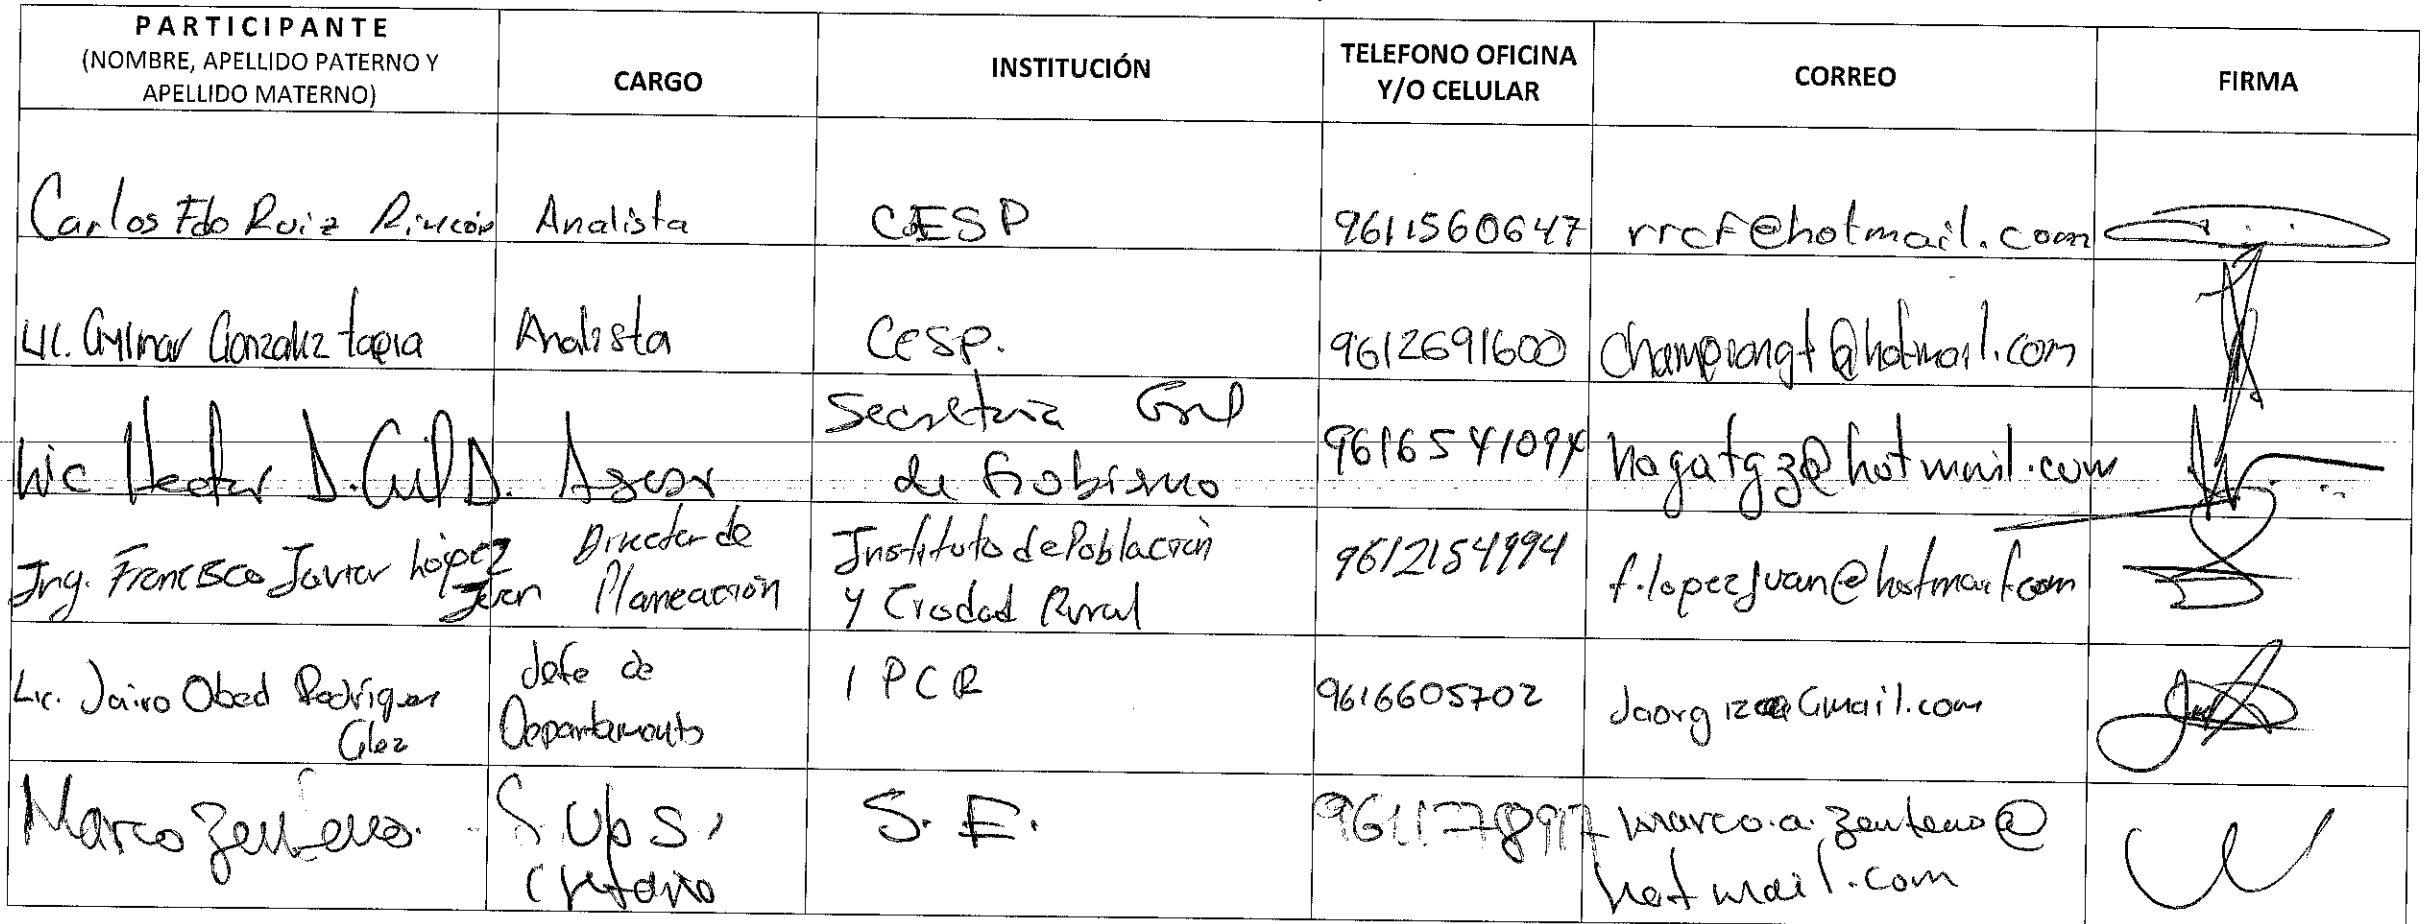 PARTICIPANTE
(NOMBRE, APELLIDO PATERNO Y
APELLIDO MATERNO)
CARGO
INSTITUCIÓN
TELEFONO OFICINA
Y/O CELULAR
CORREO
FIRMA
Carlos Fdo Ruiz Rincón
Analista
CESP
9611560647
rrcf@hotmail.com
Lic. Gylmar Gonzalez tapia
Analista
Cesp.
9612691600
championgt@hotmail.com
Lic Hector D. Gil D.
Asesor
Secretaria Gral
de Gobierno
9616541094
hagatgz@hotmail.com
Ing. Francisco Javier López
Juan
Director de
Planeación
Instituto de Población
y Ciudad Rural
9612154994
f.lopezjuan@hotmail.com
Lic. Jairo Obed Rodríguez
Glez
Jefe de
Departamento
IPCR
9616605702
Gmail.com
Marco Zenteno.
Subs
cretario
S. E.
9611178917
marco.a.zenteno@
hotmail.com